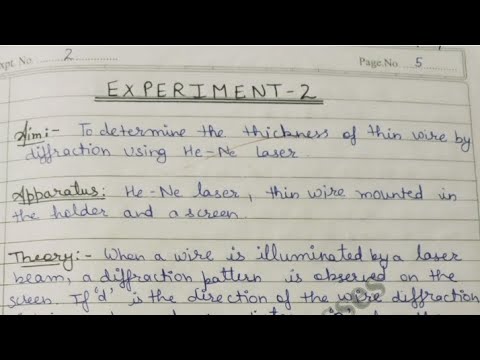 Expt. No. 2
Page No. 5
EXPERIMENT-2
Aim:- To determine the thickness of thin wire by
diffraction using He-Ne laser.
Apparatus: He-Ne laser, thin wire mounted in
the holder and a screen.
Theory:- When a wire is illuminated by a laser
beam, a diffraction pattern is observed on the
screen. If 'd' is the direction of the wire diffraction